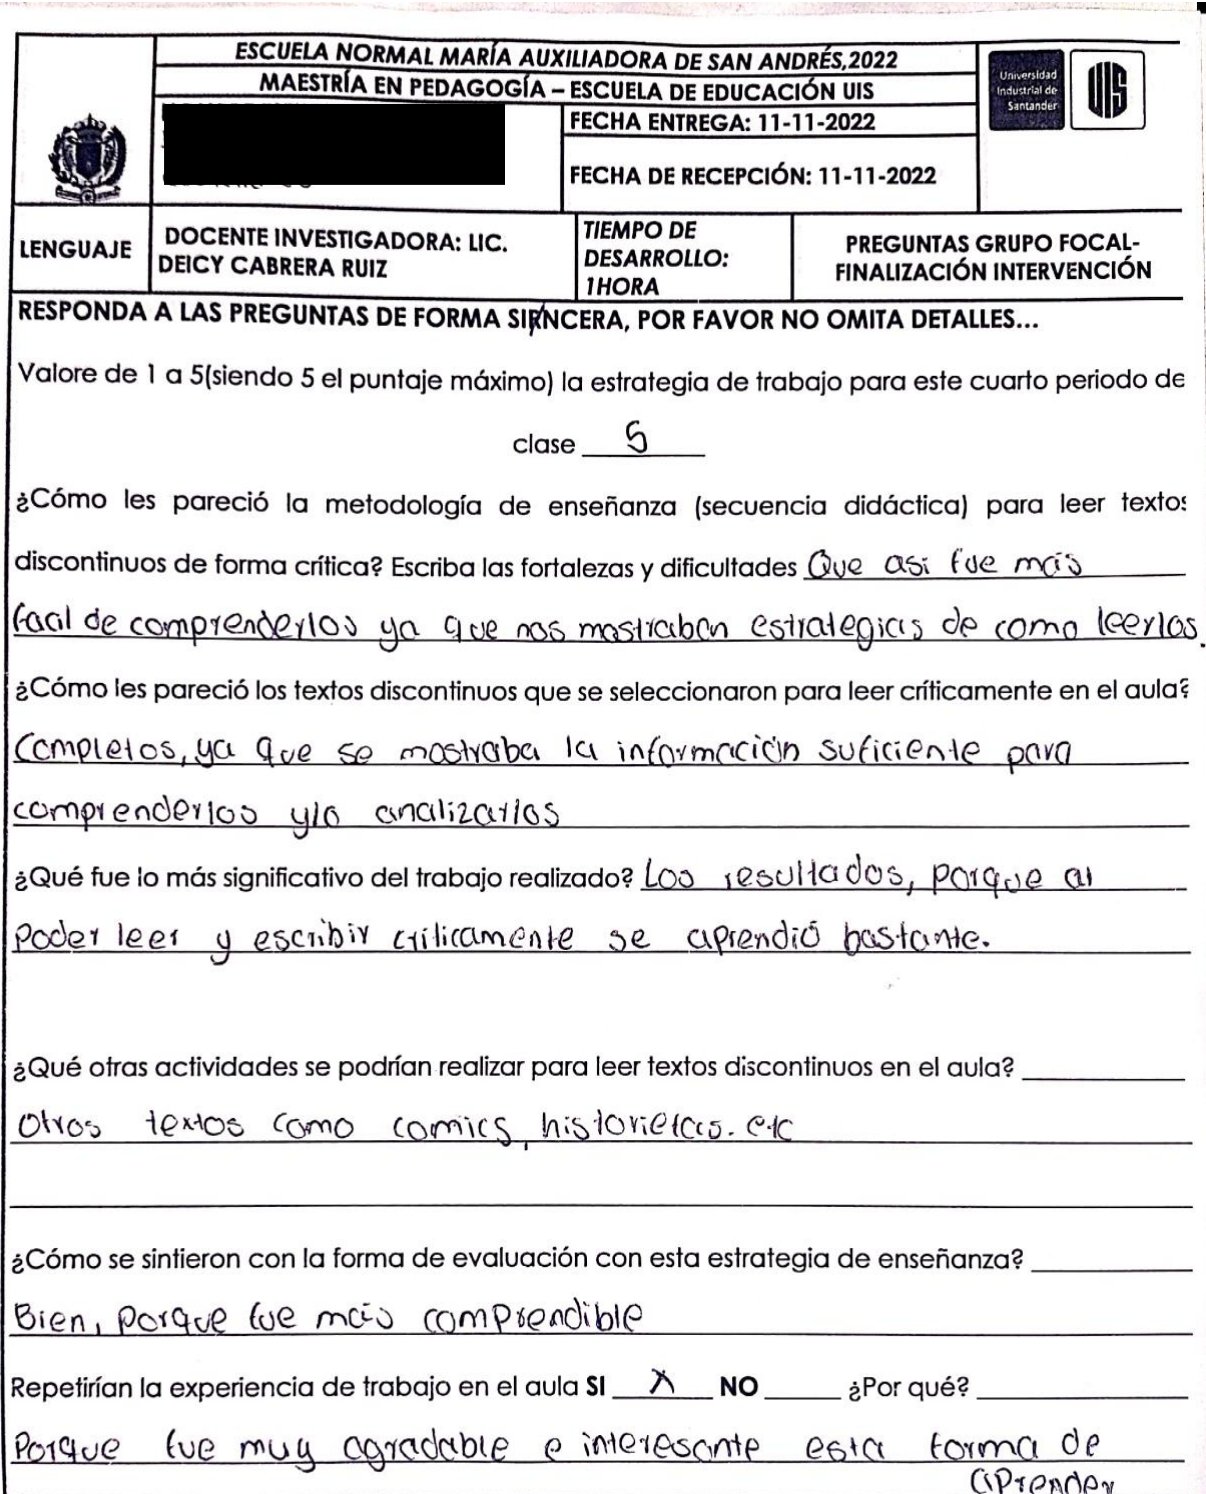 ESCUELA NORMAL MARÍA AUXILIADORA DE SAN ANDRÉS,2022
MAESTRÍA EN PEDAGOGÍA – ESCUELA DE EDUCACIÓN UIS
Universidad
Industrial de
Santander
UIS
FECHA ENTREGA: 11-11-2022
FECHA DE RECEPCIÓN: 11-11-2022
LENGUAJE
DOCENTE INVESTIGADORA: LIC.
DEICY CABRERA RUIZ
TIEMPO DE
DESARROLLO:
1HORA
PREGUNTAS GRUPO FOCAL-
FINALIZACIÓN INTERVENCIÓN
RESPONDA A LAS PREGUNTAS DE FORMA SINCERA, POR FAVOR NO OMITA DETALLES...
Valore de 1 a 5(siendo 5 el puntaje máximo) la estrategia de trabajo para este cuarto periodo de
clase 5
¿Cómo les pareció la metodología de enseñanza (secuencia didáctica) para leer textos
discontinuos de forma crítica? Escriba las fortalezas y dificultades Que asi fue más
facil de comprenderlos ya que nos mostraban estrategias de como leerlos.
¿Cómo les pareció los textos discontinuos que se seleccionaron para leer críticamente en el aula?
Completos, ya que se mostraba la información suficiente para
comprenderlos y/o analizarlos
¿Qué fue lo más significativo del trabajo realizado? Los resultados, porque al
poder leer y escribir criticamente se aprendió bastante.
¿Qué otras actividades se podrían realizar para leer textos discontinuos en el aula?
Otros textos como comics, historietas. etc
¿Cómo se sintieron con la forma de evaluación con esta estrategia de enseñanza?
Bien, porque fue más comprendible
Repetirían la experiencia de trabajo en el aula SI X NO ¿Por qué?
Porque fue muy agradable e interesante esta forma de
aprender